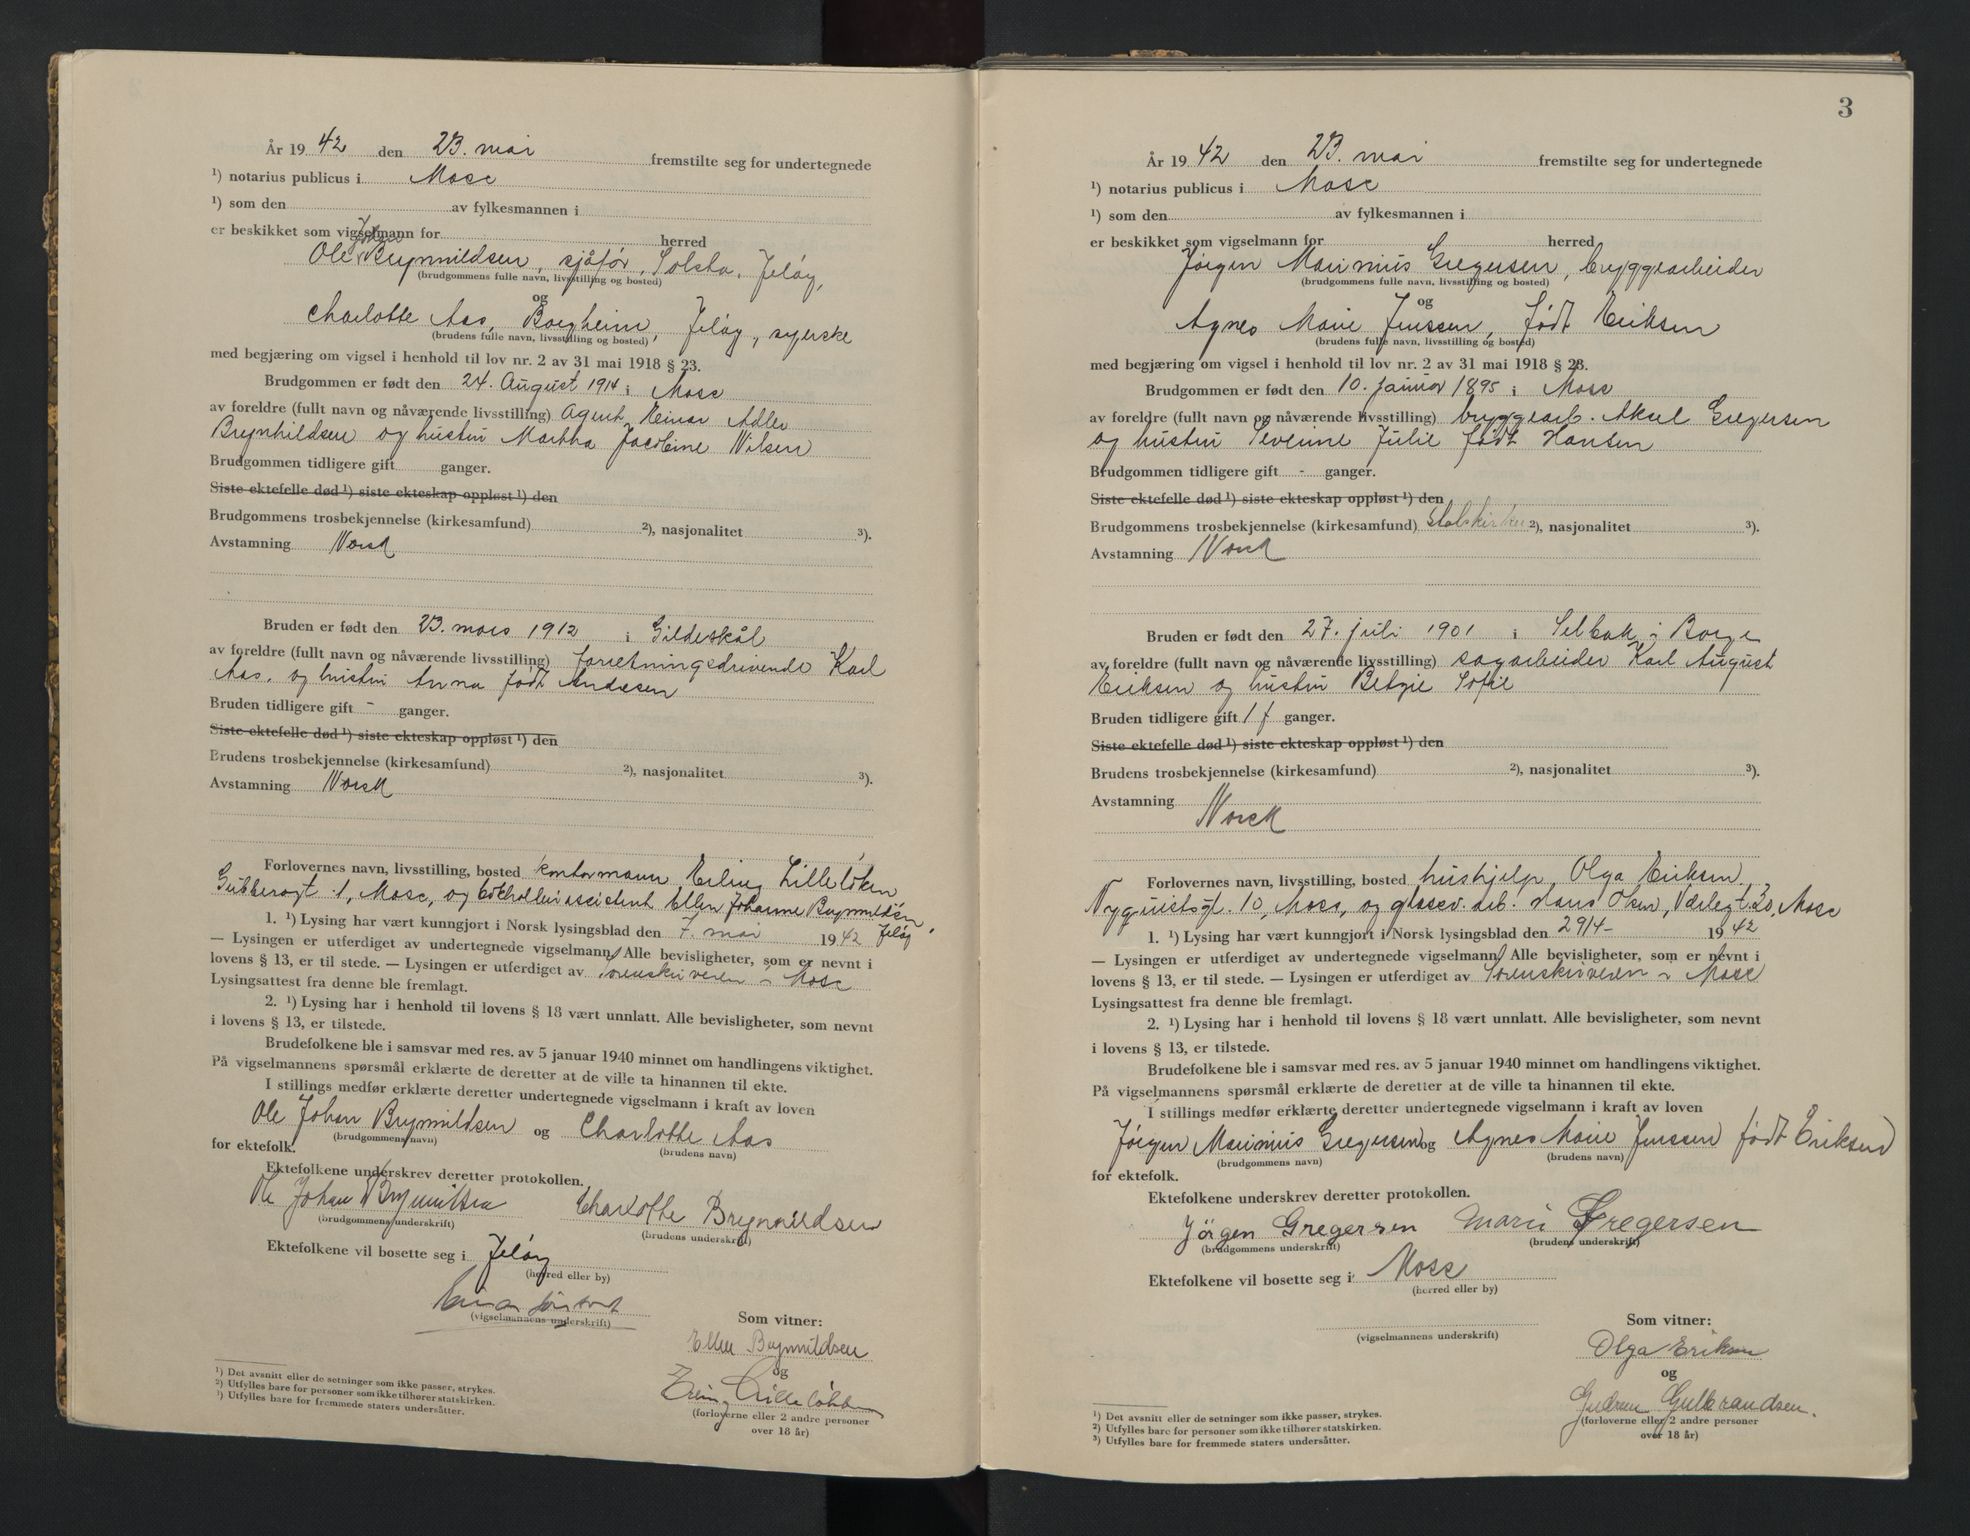 År 1942 den 23. mai fremstilte seg for undertegnede
¹) notarius publicus i Moss
¹) som den av fylkesmannen i
er beskikket som vigselmann for herred
Johan
Ole Brynildsen, sjåfør, Solsta, Jeløy,
(brudgommens fulle navn, livsstilling og bosted)
og
Charlotte Aas, Borgheim, Jeløy, syerske
(brudens fulle navn, livsstilling og bosted)
med begjæring om vigsel i henhold til lov nr. 2 av 31 mai 1918 § 23.
Brudgommen er født den 24. August 1914 i Moss
av foreldre (fullt navn og nåværende livsstilling) Agent Einar Adler
Brynhildsen og hustru Martha Jacobine Nilsen
Brudgommen tidligere gift ganger.
Siste ektefelle død ¹) siste ekteskap oppløst ¹) den
Brudgommens trosbekjennelse (kirkesamfund) ²), nasjonalitet ³).
Avstamning Norsk
Bruden er født den 23. mars 1912 i Gildeskål
av foreldre (fullt navn og nåværende livsstilling) forretningsdrivende Karl
Aas, og hustru Anna født Andersen
Bruden tidligere gift - ganger.
Siste ektefelle død ¹) siste ekteskap oppløst ¹) den
Brudens trosbekjennelse (kirkesamfund) ²), nasjonalitet ³).
Avstamning Norsk
Forlovernes navn, livsstilling, bosted kontormann Erling Lilleløken
Gubberogt. 1, Moss, og Ellen Johanne Brynildsen,
1. ¹) Lysing har vært kunngjort i Norsk lysingsblad den 7. mai 1942 Jeløy
— Lysingen er utferdiget av undertegnede vigselmann. Alle bevisligheter, som er nevnt i
lovens § 13, er til stede. — Lysingen er utferdiget av Sorenskriveren i Moss
Lysingsattest fra denne ble fremlagt.
2. ¹) Lysing har i henhold til lovens § 18 vært unnlatt. Alle bevisligheter, som nevnt
i lovens § 13, er tilstede.
Brudefolkene ble i samsvar med res. av 5 januar 1940 minnet om handlingens viktighet.
På vigselmannens spørsmål erklærte de deretter at de ville ta hinannen til ekte.
I stillings medfør erklærte deretter undertegnede vigselmann i kraft av loven
Ole Johan Brynildsen og Charlotte Aas
(brudgommens navn) (brudens navn)
for ektefolk.
Ektefolkene underskrev deretter protokollen.
Ole Johan Brynildsen Charlotte Brynildsen
(brudgommens underskrift) (brudens underskrift)
Ektefolkene vil bosette seg i Jeløy
(herred eller by)
(vigselmannens underskrift)
Som vitner:
Ellen Brynildsen
og
Erling Lilleløken
(forloverne eller 2 andre personer
over 18 år)
¹) Det avsnitt eller de setninger som ikke passer, strykes.
²) Utfylles bare for personer som ikke tilhører statskirken.
³) Utfylles bare for fremmede staters undersåtter.
3
År 1942 den 23. mai fremstilte seg for undertegnede
¹) notarius publicus i Moss
¹) som den av fylkesmannen i
er beskikket som vigselmann for herred
Jørgen Marinius Gregersen, bryggearbeider
(brudgommens fulle navn, livsstilling og bosted)
og
Agnes Marie Jenssen, født Eriksen
(brudens fulle navn, livsstilling og bosted)
med begjæring om vigsel i henhold til lov nr. 2 av 31 mai 1918 § 23.
Brudgommen er født den 10. januar 1895 i Moss
av foreldre (fullt navn og nåværende livsstilling) bryggearb. Aksel Gregersen
og hustru Severine Julie født Hansen
Brudgommen tidligere gift - ganger.
Siste ektefelle død ¹) siste ekteskap oppløst ¹) den
Brudgommens trosbekjennelse (kirkesamfund) Statskirken ²), nasjonalitet ³).
Avstamning Norsk
Bruden er født den 27. juli 1901 i Selbak i Borge
av foreldre (fullt navn og nåværende livsstilling) sagarbeider Karl August
Eriksen og hustru Betzie Sofie
Bruden tidligere gift 1 ganger.
Siste ektefelle død ¹) siste ekteskap oppløst ¹) den
Brudens trosbekjennelse (kirkesamfund) ²), nasjonalitet ³).
Avstamning
Norsk
Forlovernes navn, livsstilling, bosted hushjelp, Olga Eriksen,
Nyquistsgt. 10, Moss, og glassv. arb. Hans Olsen, Værlegt. 20, Moss
1. ¹) Lysing har vært kunngjort i Norsk lysingsblad den 29/4- 1942
— Lysingen er utferdiget av undertegnede vigselmann. Alle bevisligheter, som er nevnt i
lovens § 13, er til stede. — Lysingen er utferdiget av Sorenskriveren i Moss
Lysingsattest fra denne ble fremlagt.
2. ¹) Lysing har i henhold til lovens § 18 vært unnlatt. Alle bevisligheter, som nevnt
i lovens § 13, er tilstede.
Brudefolkene ble i samsvar med res. av 5 januar 1940 minnet om handlingens viktighet.
På vigselmannens spørsmål erklærte de deretter at de ville ta hinannen til ekte.
I stillings medfør erklærte deretter undertegnede vigselmann i kraft av loven
Jørgen Marinius Gregersen og Agnes Marie Jenssen født Eriksen
(brudgommens navn) (brudens navn)
for ektefolk.
Ektefolkene underskrev deretter protokollen.
Jörgen Gregersen Marie Gregersen
(brudgommens underskrift) (brudens underskrift)
Ektefolkene vil bosette seg i Moss
(herred eller by)
(vigselmannens underskrift)
Som vitner:
Olga Eriksen
og
Gudrun Gulbrandsen.
(forloverne eller 2 andre personer
over 18 år)
¹) Det avsnitt eller de setninger som ikke passer, strykes.
²) Utfylles bare for personer som ikke tilhører statskirken.
³) Utfylles bare for fremmede staters undersåtter.